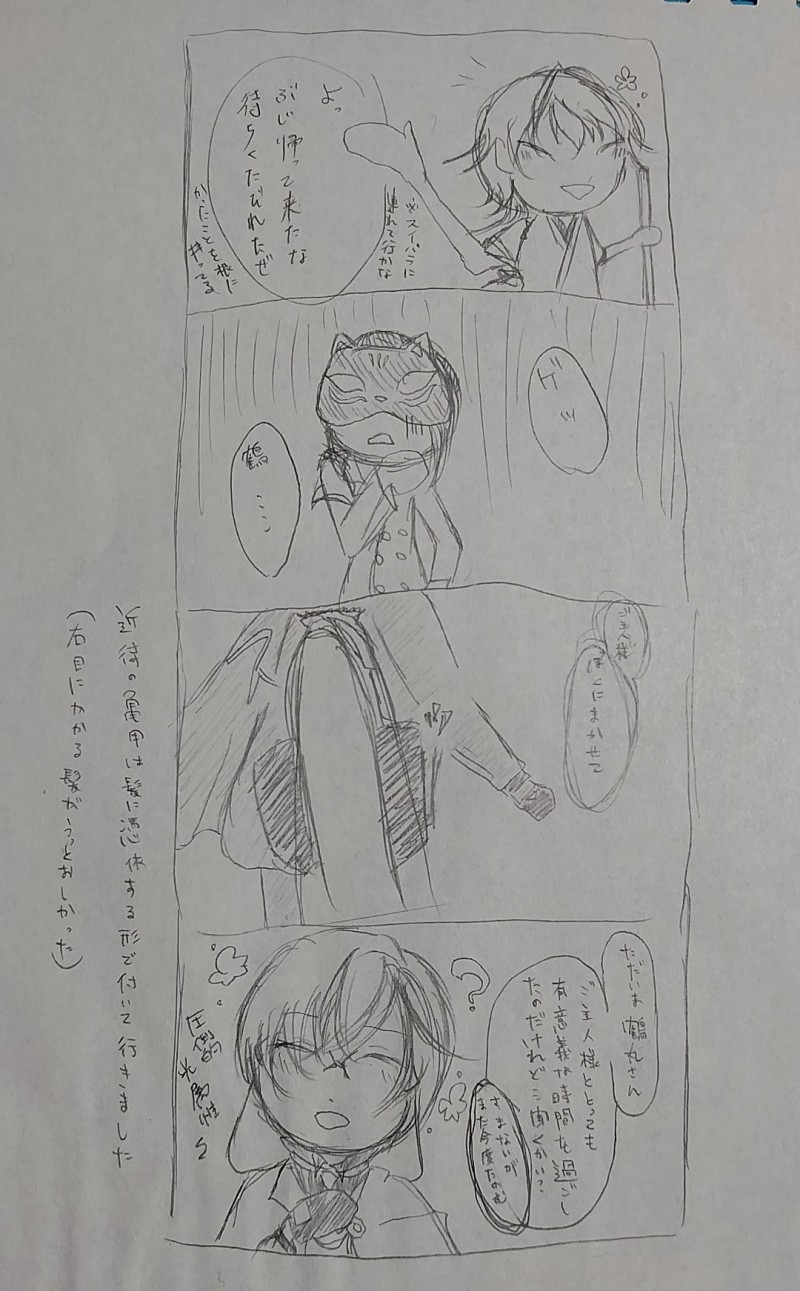 よっ
ぶじ帰って来たな
待ちくたびれたぜ
※スイパラに
連れて行かな
かったことを根に
もってる
ゲッ
鶴…
ご主人様
ぼくにまかせて
ス
ただいま鶴丸さん
ご主人様ととっても
有意義な時間を過ごし
たのだけれど…聞くかい?
さまないが
また今度たのむ
?
圧倒的
光属性2
近侍の亀甲は髪に憑依する形で付いて行きました
(右目にかかる髪がうっとおしかった)